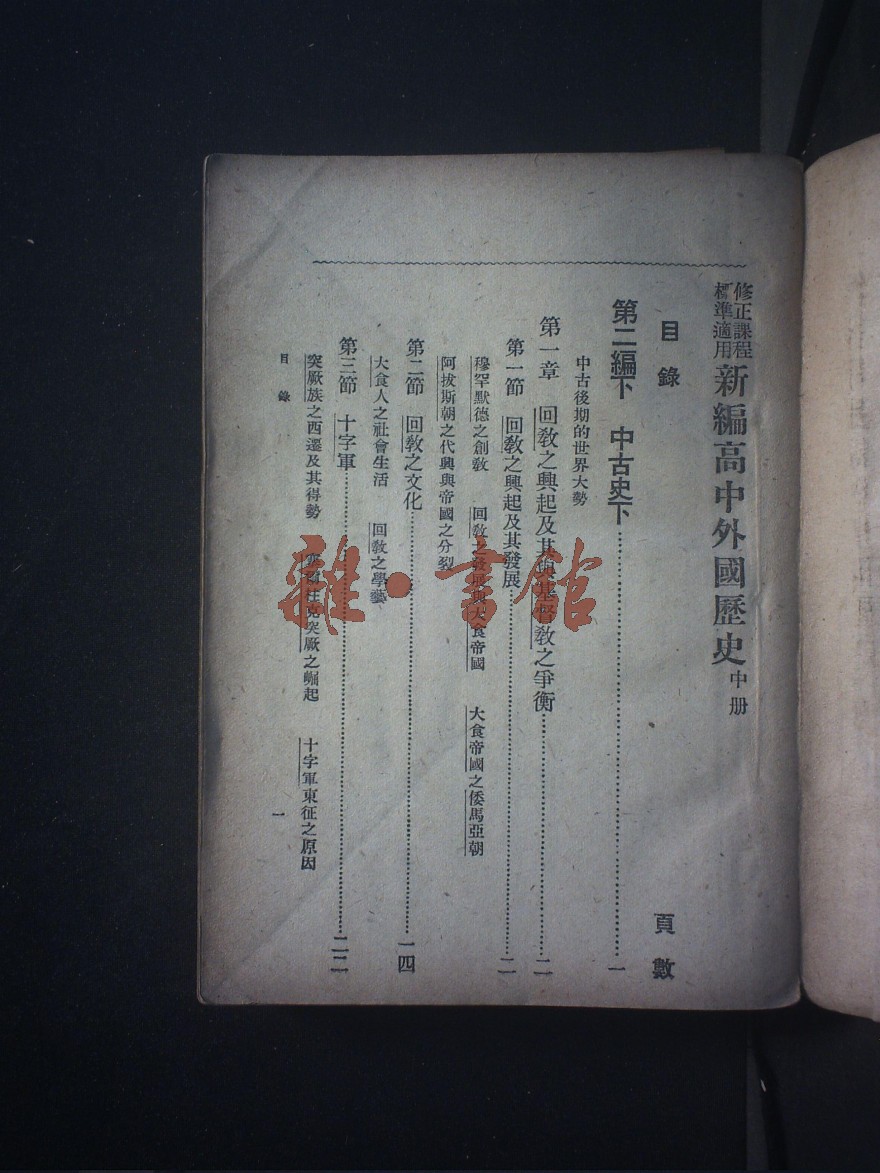 修正課程標準適用 新編高中外國歷史 中册
目錄 頁數
第二編下 中古史下 一
中古後期的世界大勢
第一章 回教之興起及其與基督教之爭衡 二
第一節 回教之興起及其發展 二
穆罕默德之創教 回教之發展與大食帝國 大食帝國之倭馬亞朝
阿拔斯朝之代興與帝國之分裂
第二節 回教之文化 一四
大食人之社會生活 回教之學藝
第三節 十字軍 二二
突厥族之西遷及其得勢 塞爾柱克突厥之崛起 十字軍東征之原因
目錄 一
雜·书馆